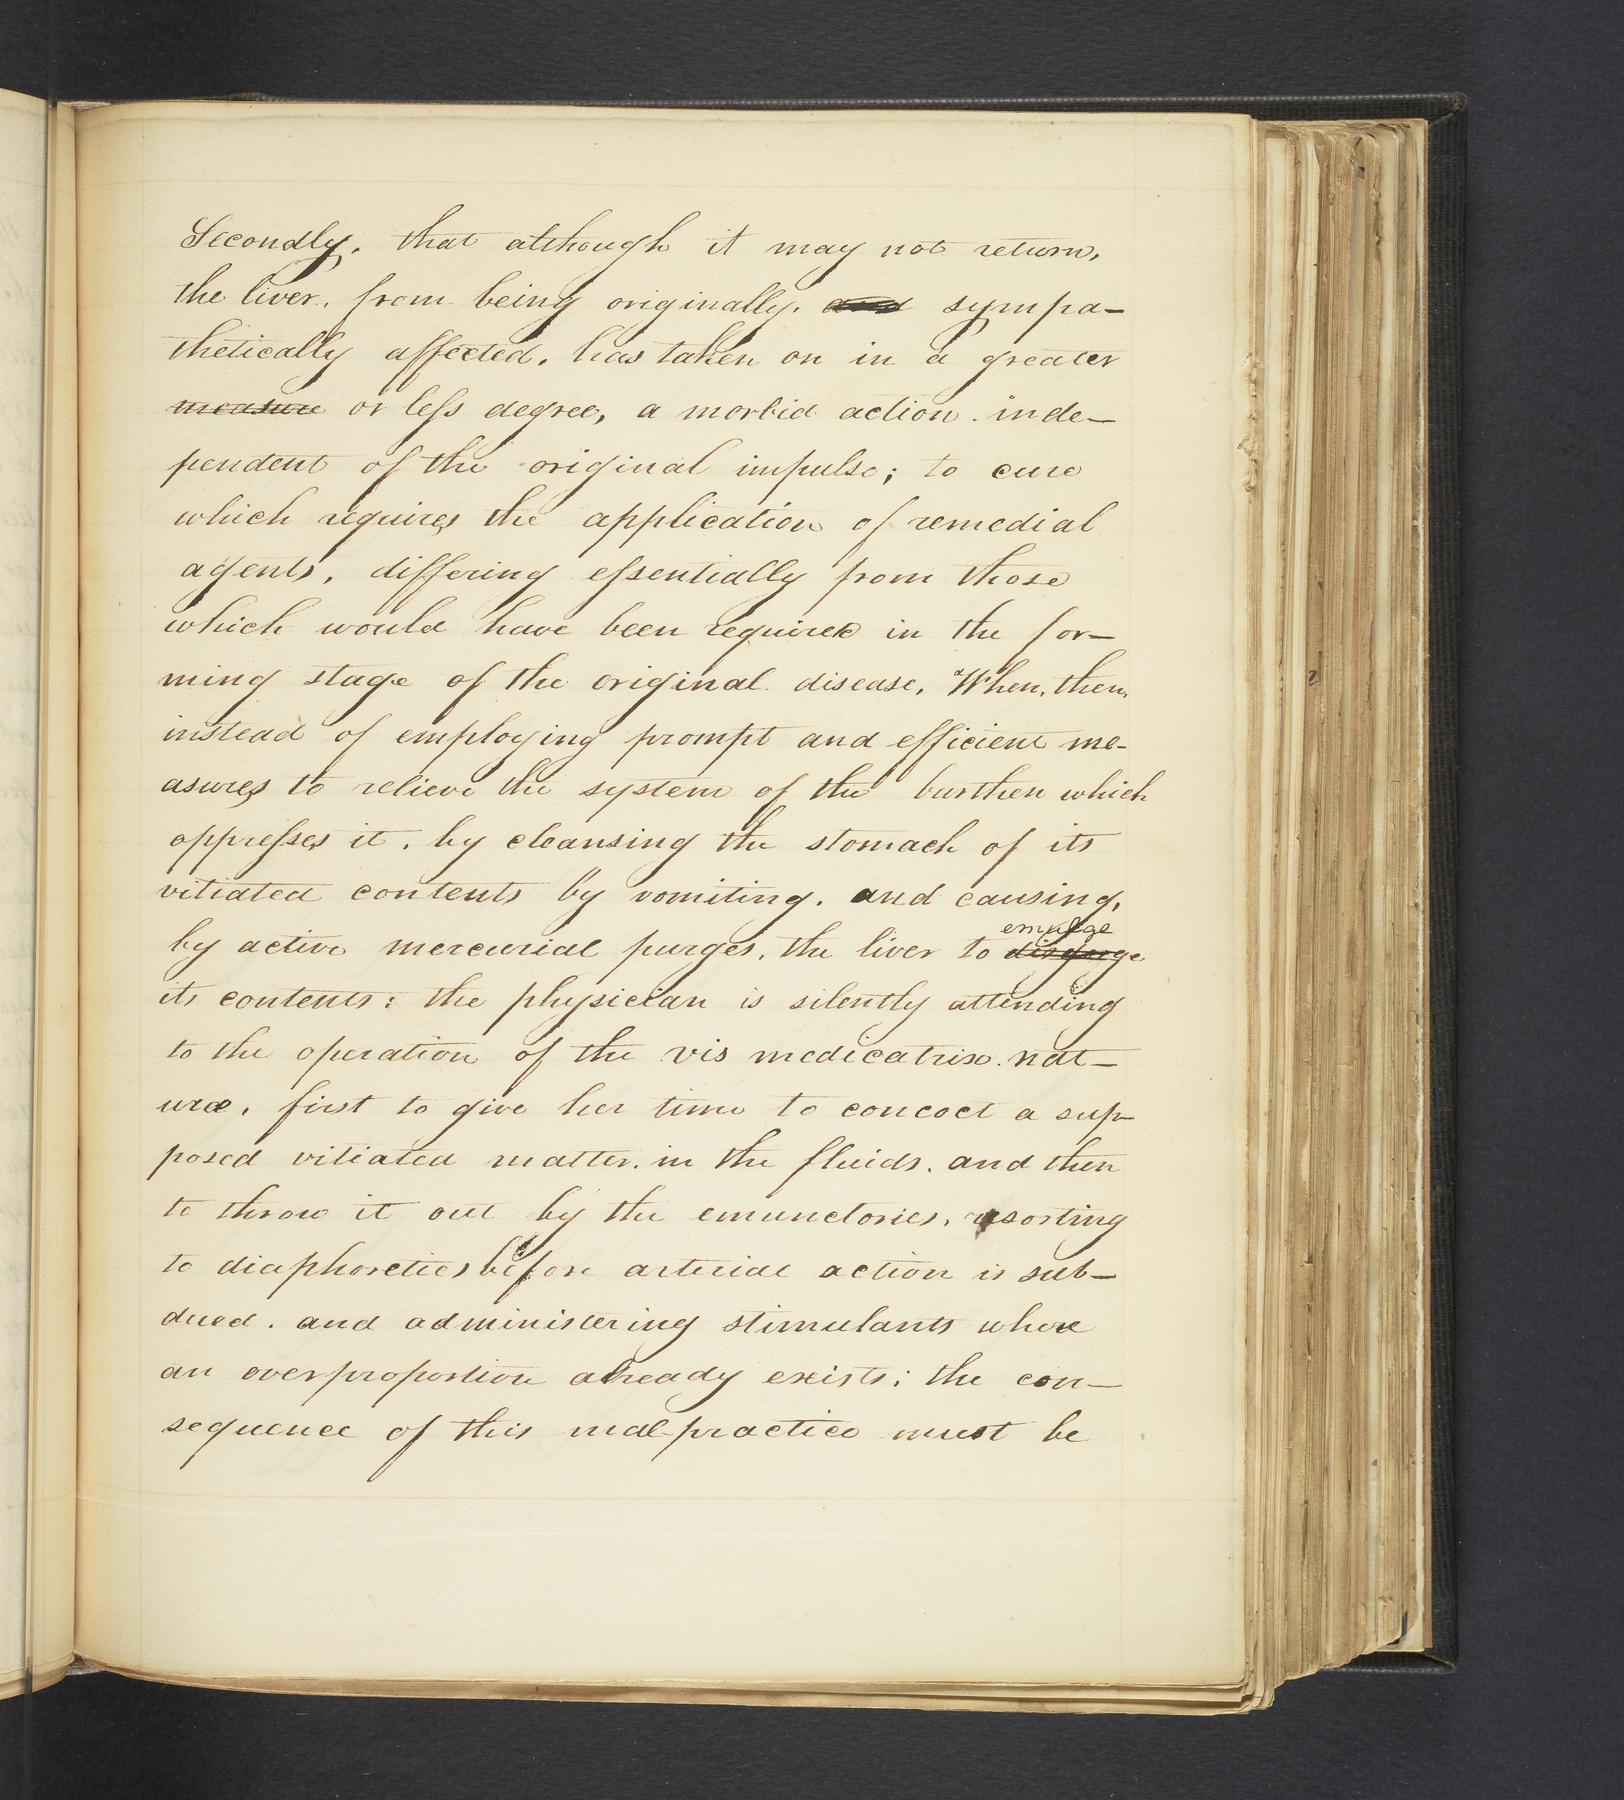 Secondly, that although it may not return,
the liver, from being originally, and sympa-
thetically affected, has taken on in a greater
measure or less degree, a morbid action inde-
pendent of the original impulse; to cure
which requires the application of remedial
agents, differing essentially from those
which would have been required in the for-
ming stage of the original disease. When, then,
instead of employing prompt and efficient me-
asures to relieve the system of the burthen which
oppresses it, by cleansing the stomach of its
vitiated contents by vomiting, and causing,
emulge
by active mercurial purges, the liver to disgorge
its contents; the physician is silently attending
to the operation of the vis medicatrix nat-
uræ, first to give her time to concoct a sup-
posed vitiated matter in the fluids, and then
to throw it out by the emunctories, resorting
to diaphoretics before arterial action is sub-
dued, and administering stimulants where
an overproportion already exists; the con-
sequence of this mal-practice must be